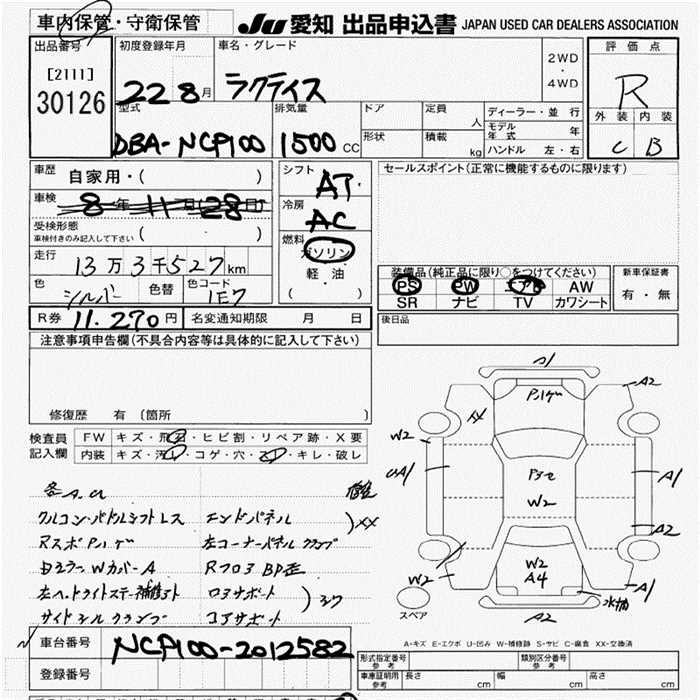 車内保管・守衛保管
JU 愛知 出品申込書 JAPAN USED CAR DEALERS ASSOCIATION
出品番号
[2111]
30126
初度登録年月
22 8月
車名・グレード
ラクティス
2WD
・
4WD
評価点
R
外装 内装
C B
型式
DBA-NCP100
排気量
1500 CC
ドア
形状
定員 人
積載 kg
ディーラー・並行
モデル年式 年
ハンドル 左・右
車歴 自家用・( )
車検 8年11月(28日)
受検形態
車検付きのみ記入して下さい ( )
走行
13万3千527km
色 シルバー 色替 色コード 1E7
シフト AT
冷房 AC
燃料 ガソリン
軽・油
( )
セールスポイント(正常に機能するものに限ります)
装備品(純正品に限り○をつけてください)
PS PW エアB AW
SR ナビ TV カワシート
新車保証書
有・無
R券 11.270円 名変通知期限 月 日
後日品
注意事項申告欄(不具合内容等は具体的に記入して下さい)
修復歴 有 (箇所 )
検査員記入欄
FW キズ・飛石・ヒビ割・リペア跡・X要
内装 キズ・汚れ・コゲ・穴・スレ・キレ・破レ
各A.U
クルコン・パドルシフトレス エンドパネル
XX
RスポPハゲ 左コーナーパネルクランプ
白ミラーWカバーA Rフロア BP歪
左ヘッドライトステー補修跡 ロアサポート
サイドシルクランプ コアサポート
A1
Pハゲ
A2
XX
W2
A1
P3セ
W2
A1
A2
W2
W2
A4
A1
A2
スペア
A-キズ E-エクボ U-凹み W-補修跡 S-サビ C-腐食 XX-交換済
車台番号 NCP100-2012582
登録番号
形式指定番号 参考
類別区分番号 参考
車庫証明用 参考 長さ cm 幅 cm 高さ cm